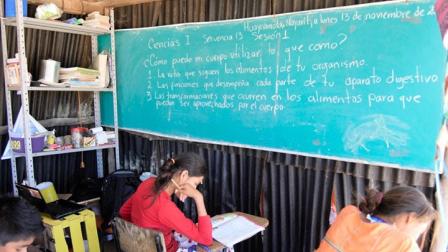 Huaynamota, Nayarit, a lunes 13 de noviembre de 2
Ciencias I Secuencia 13 Sesión 1
¿Cómo puede mi cuerpo utilizar lo que como?
1 La ruta que siguen los alimentos de tu organismo.
2 Las funciones que desempeña cada parte de tu aparato digestivo
3 Las transformaciones que ocurren en los alimentos para que
puedan ser aprovechados por el cuerpo.